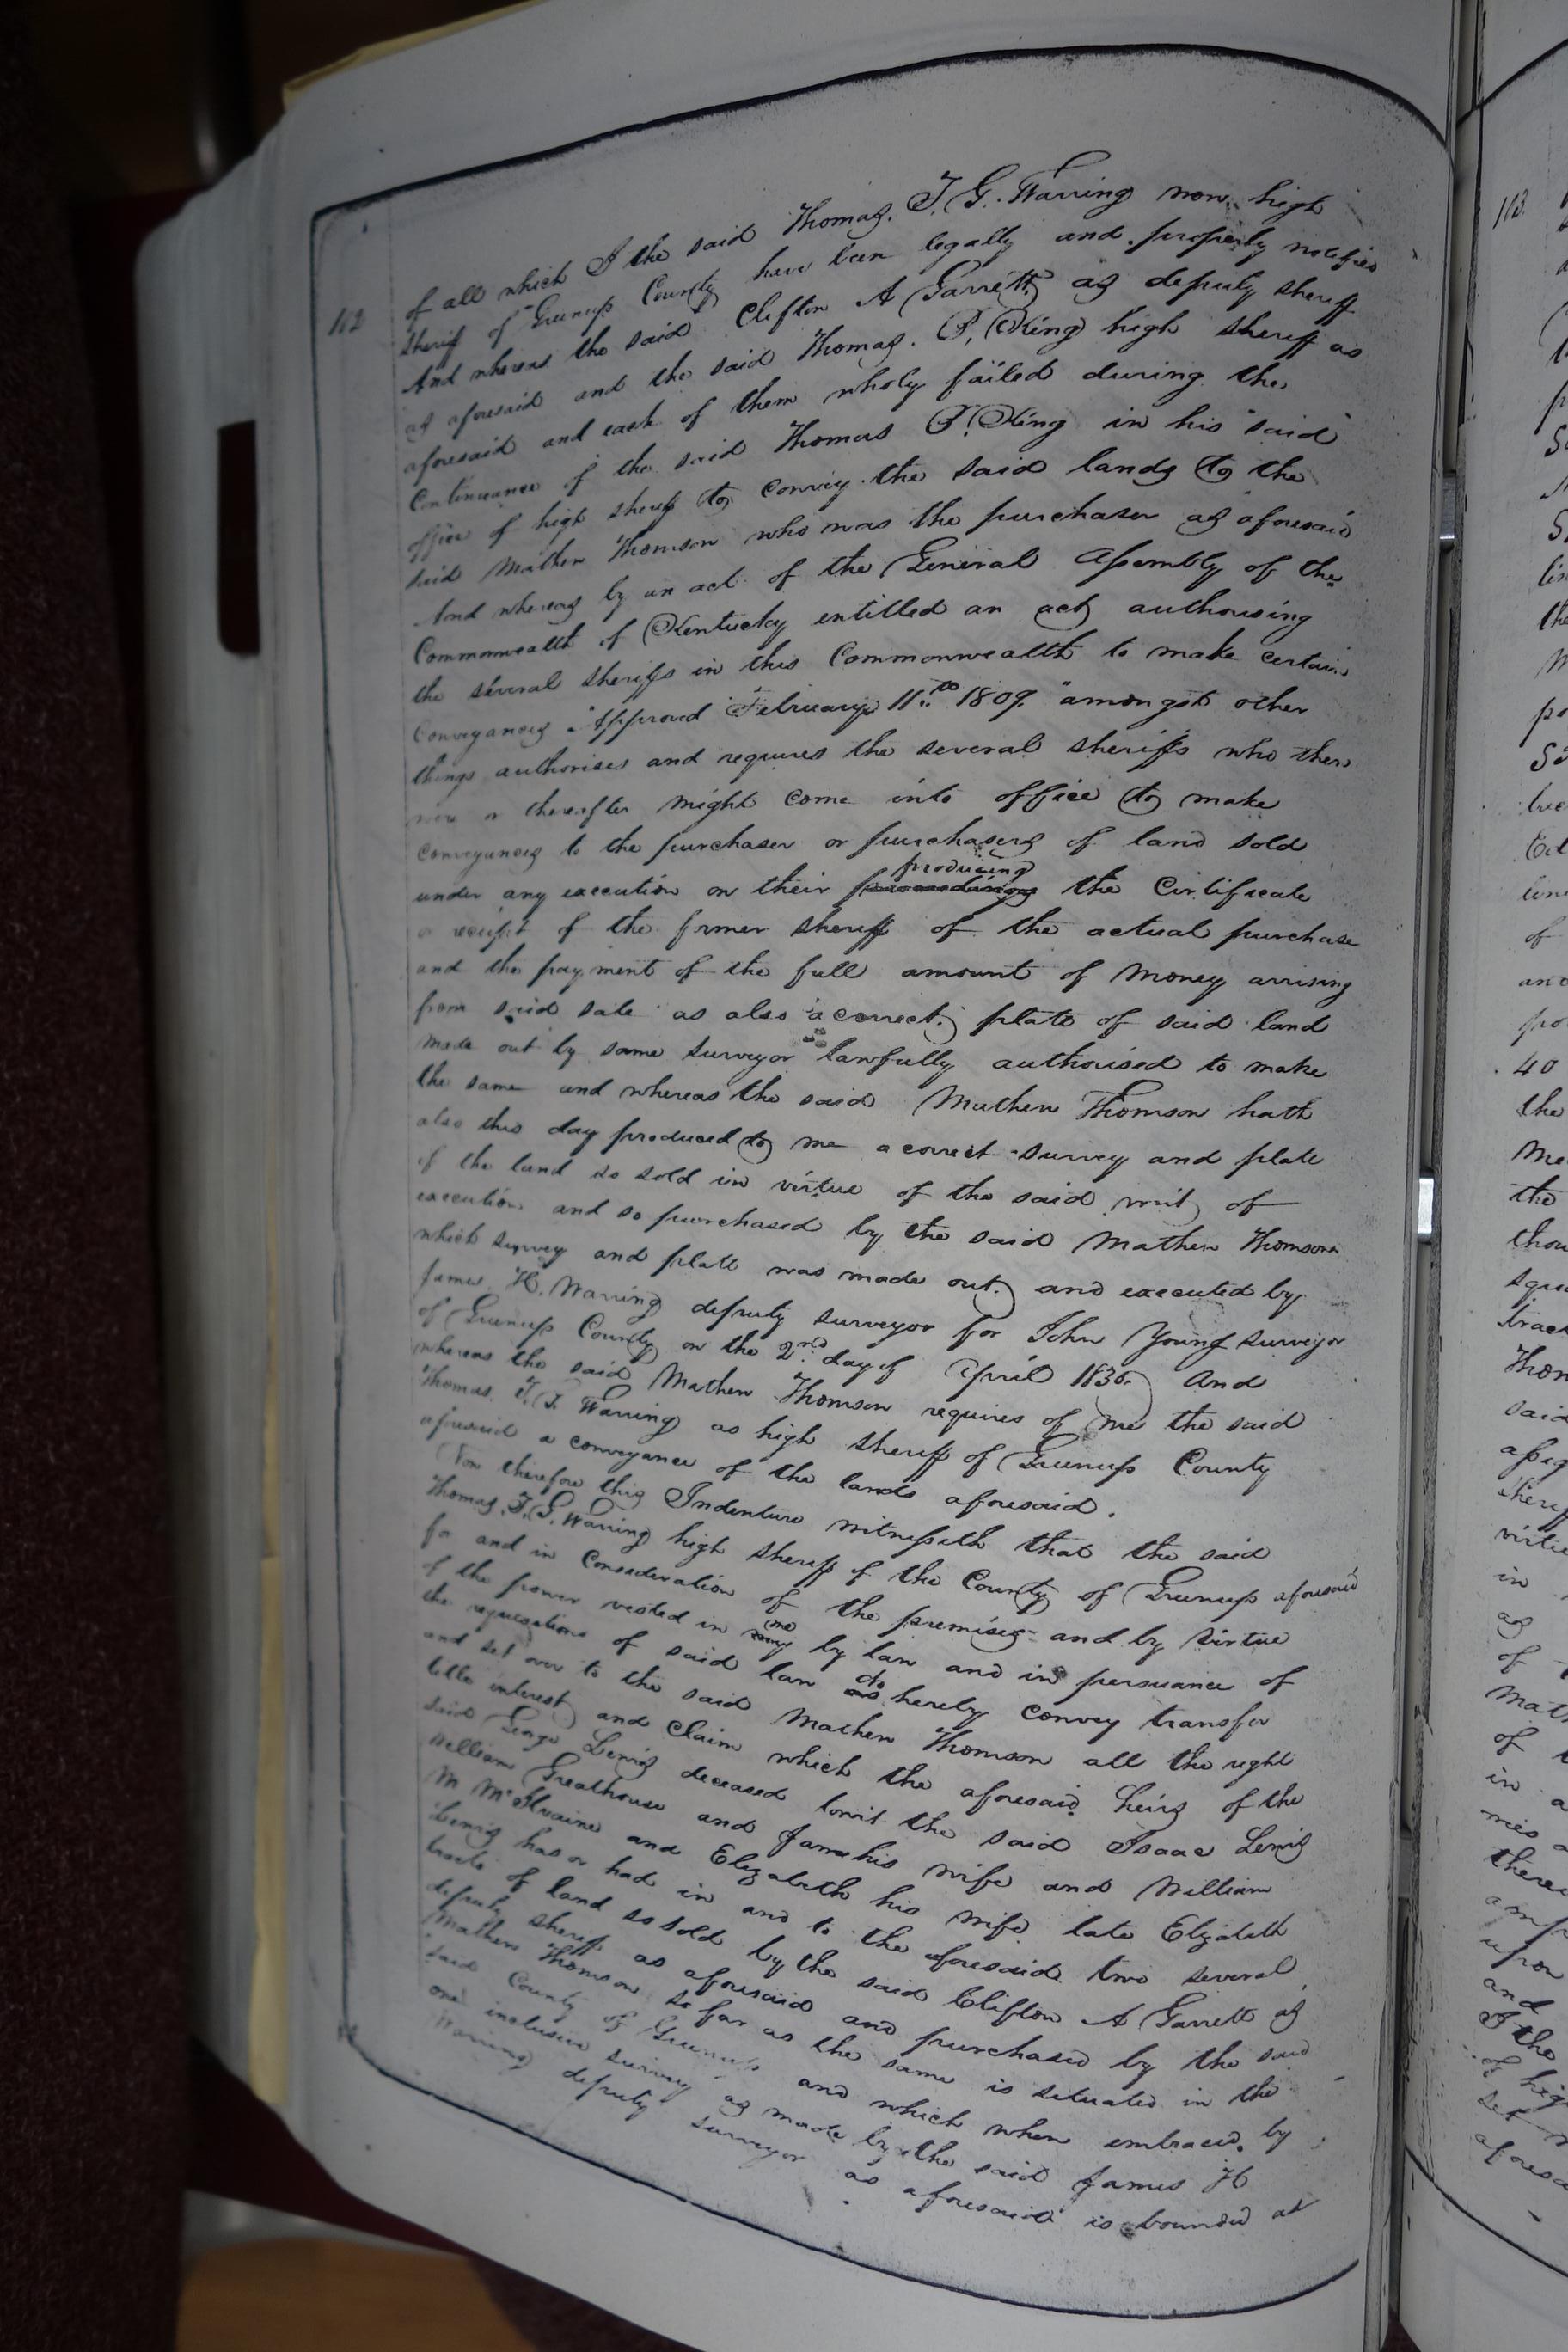 112
of all which I the said Thomas. T. G. Warring now high
Sheriff of Greenup County have been legally and properly notified
And whereas the said Clifton A Garrett as deputy sheriff
as aforesaid and the said Thomas. B. King high sheriff as
aforesaid and each of them wholy failed during the
Continuance of the said Thomas B. King in his said
office of high sheriff to convey the said lands to the
said Mathew Thomson who was the purchaser as aforesaid
And whereas by an act of the General Assembly of the
Commonwealth of Kentucky entitled an act authorising
the several sheriffs in this Commonwealth to make certain
Conveyances "Approved February 11th 1809." amongst other
things authorises and requires the several sheriffs who then
were or thereafter might come into office to make
Conveyances to the purchaser or purchasers of land sold
under any execution on their producing the Certificate
or receipt of the former sheriff of the actual purchase
and the payment of the full amount of money arrising
from said sale as also a correct plate of said land
made out by some surveyor lawfully authorised to make
the same and whereas the said Mathew Thomson hath
also this day produced to me a correct survey and plate
of the land so sold in virtue of the said writ of
execution and so purchased by the said Mathew Thomson
which survey and platt was made out and executed by
James H. Warring deputy surveyor for John Young surveyor
of Greenup County on the 2nd day of April 1836 And
whereas the said Mathew Thomson requires of me the said
Thomas. T. G. Warring as high sheriff of Greenup County
aforesaid a conveyance of the lands aforesaid.
Now therefore this Indenture witnesseth that the said
Thomas. T. G. Warring high sheriff of the County of Greenup aforesaid
for and in Consideration of the premises and by virtue
of the power vested in me by law and in persuance of
the requesations of said law do hereby convey transfer
and set over to the said Mathew Thomson all the right
title interest and claim which the aforesaid heirs of the
said George Lewis deceased towit the said Isaac Lewis
William Greathouse and Jane his wife and William
M McIlvaine and Elizabeth his wife late Elizabeth
Lewis has or had in and to the aforesaid two several
tracts of land so sold by the said Clifton A Garrett as
deputy sheriff as aforesaid and purchased by the said
Mathew Thomson so far as the same is situated in the
said County of Greenup and which when embraced by
one inclusive survey as made by the said James H
Warring deputy surveyor as aforesaid is bounded as
113.